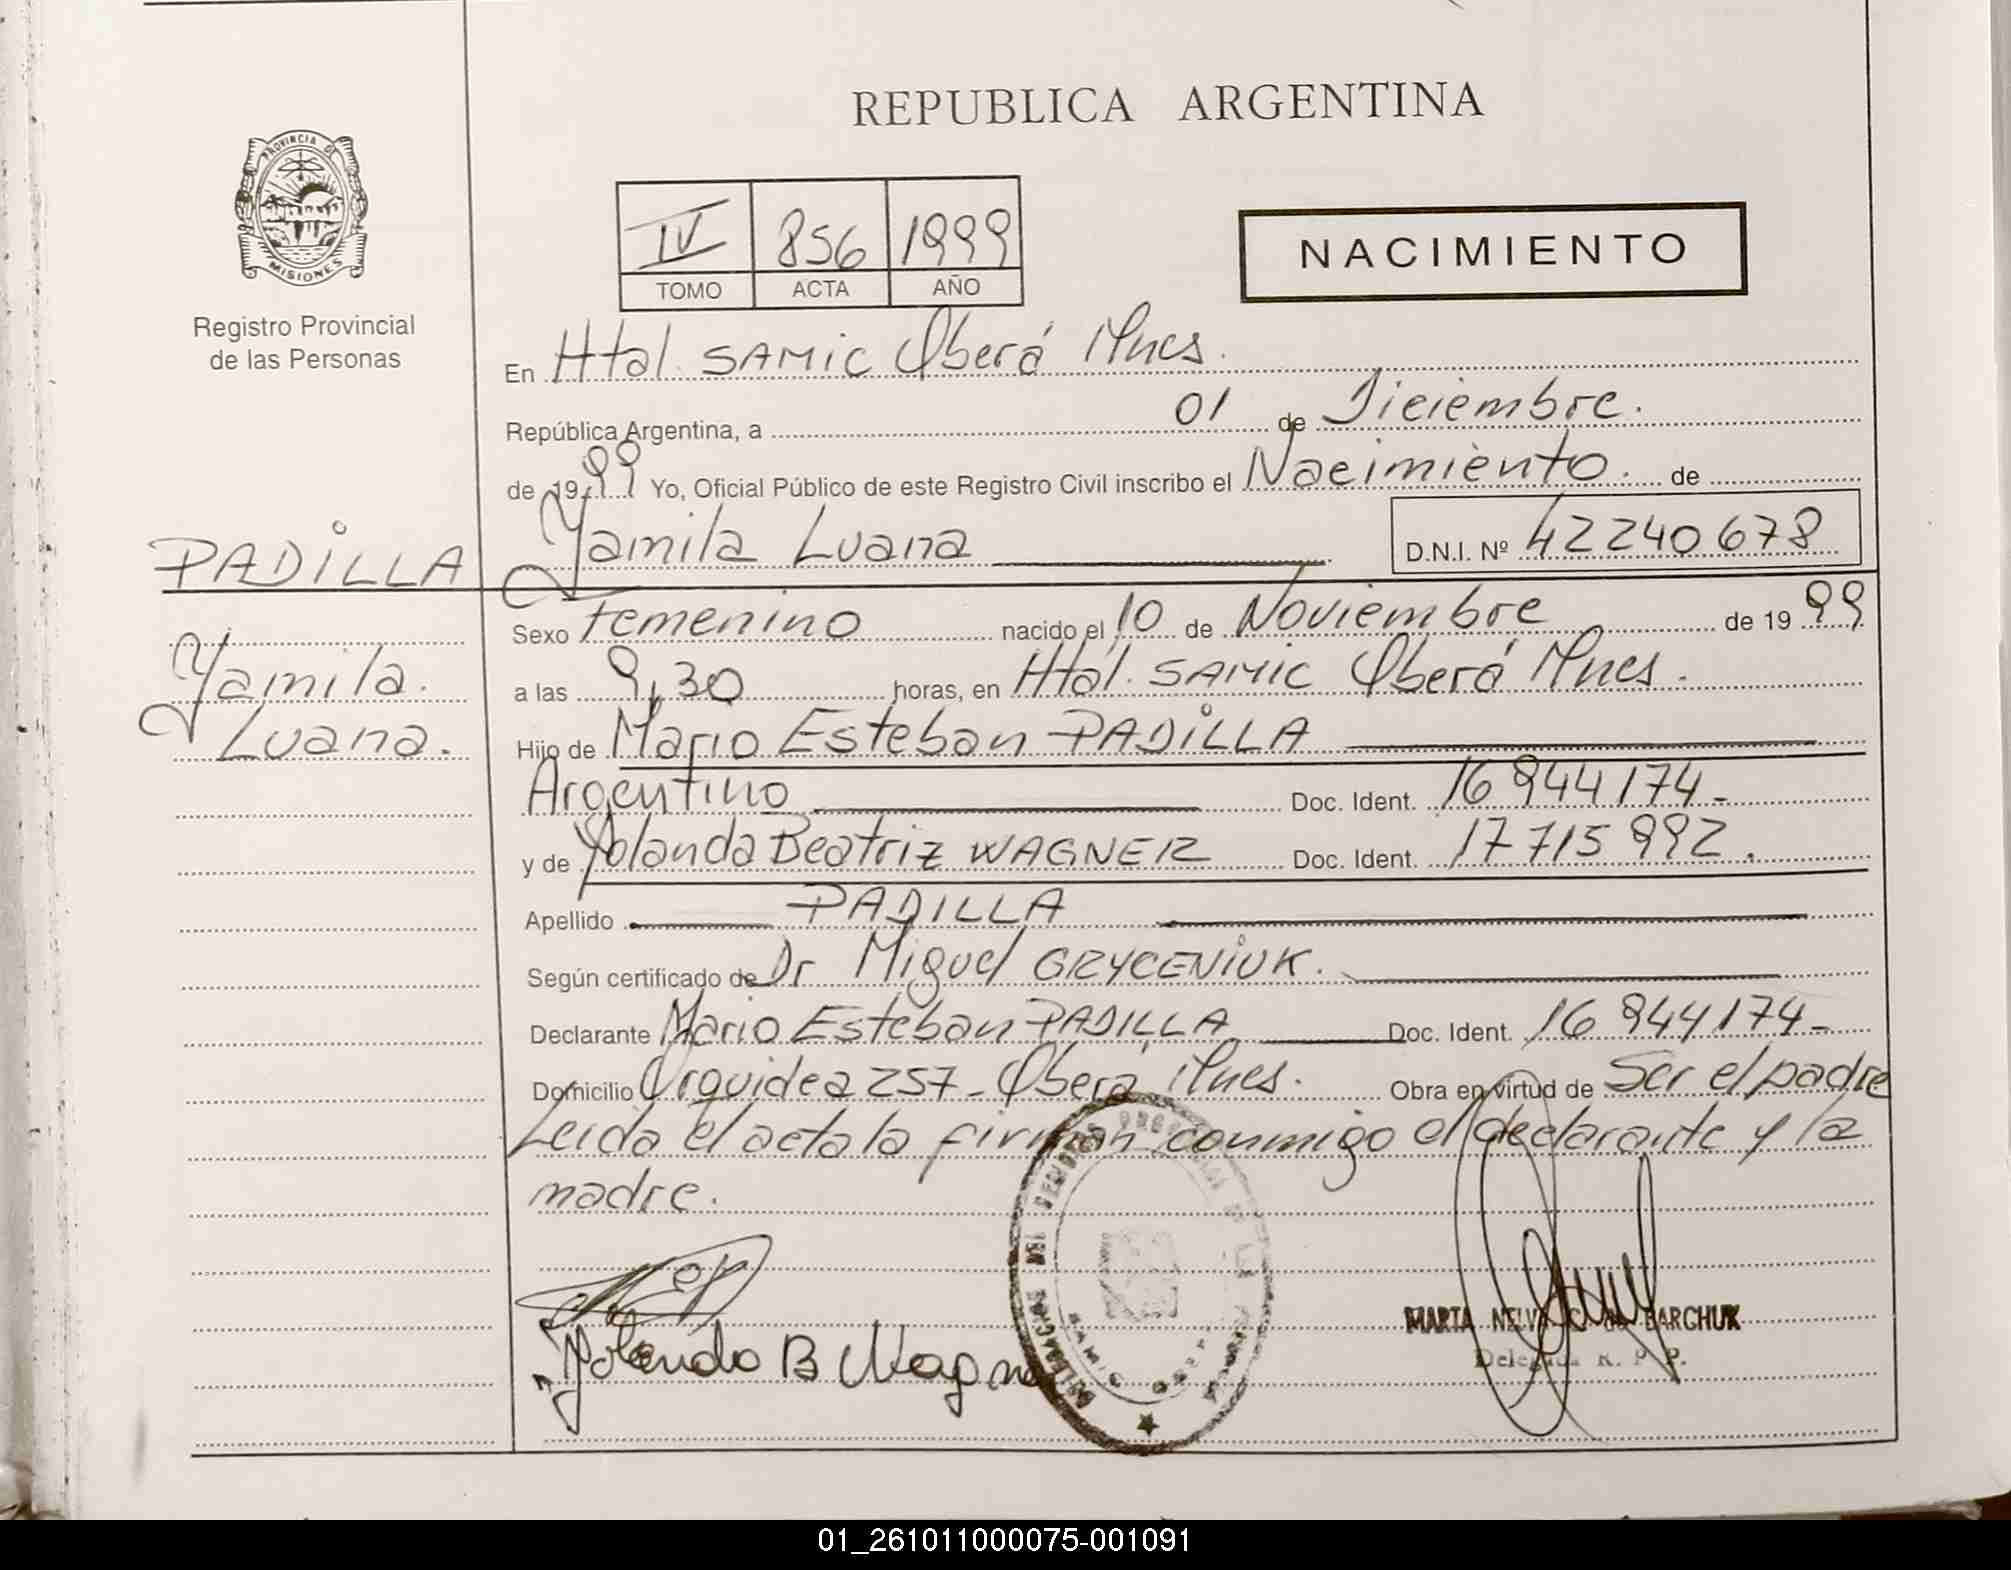 REPUBLICA ARGENTINA
PROVINCIA DE
MISIONES
Registro Provincial
de las Personas
IV 856 1999
TOMO ACTA AÑO
NACIMIENTO
En Htal. SAMIC Oberá Mnes.
República Argentina, a 01 de Diciembre.
de 1999 Yo, Oficial Público de este Registro Civil inscribo el Nacimiento. de
PADILLA
Yamila Luana
D.N.I. Nº 42240678
Yamila.
Luana.
Sexo femenino nacido el 10 de Noviembre de 1999
a las 9,30 horas, en Htal. SAMIC Oberá Mnes.
Hijo de Mario Esteban PADILLA
Argentino Doc. Ident. 16944174-
y de Yolanda Beatriz WAGNER Doc. Ident. 17715992.
Apellido PADILLA
Según certificado de Dr Miguel GRYCENIUK.
Declarante Mario Esteban PADILLA Doc. Ident. 16944174-
Domicilio Orquidea 257- Oberá Mnes. Obra en virtud de Ser el padre
Leida el acta la firman conmigo el declarante y la
madre.
Yolanda B Wagner
MARTA C. de BARCHUK
Delegada R. P. P.
01_261011000075-001091